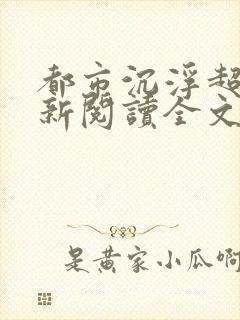 都市沉浮超
新閱讀全文
是黄家小瓜啊